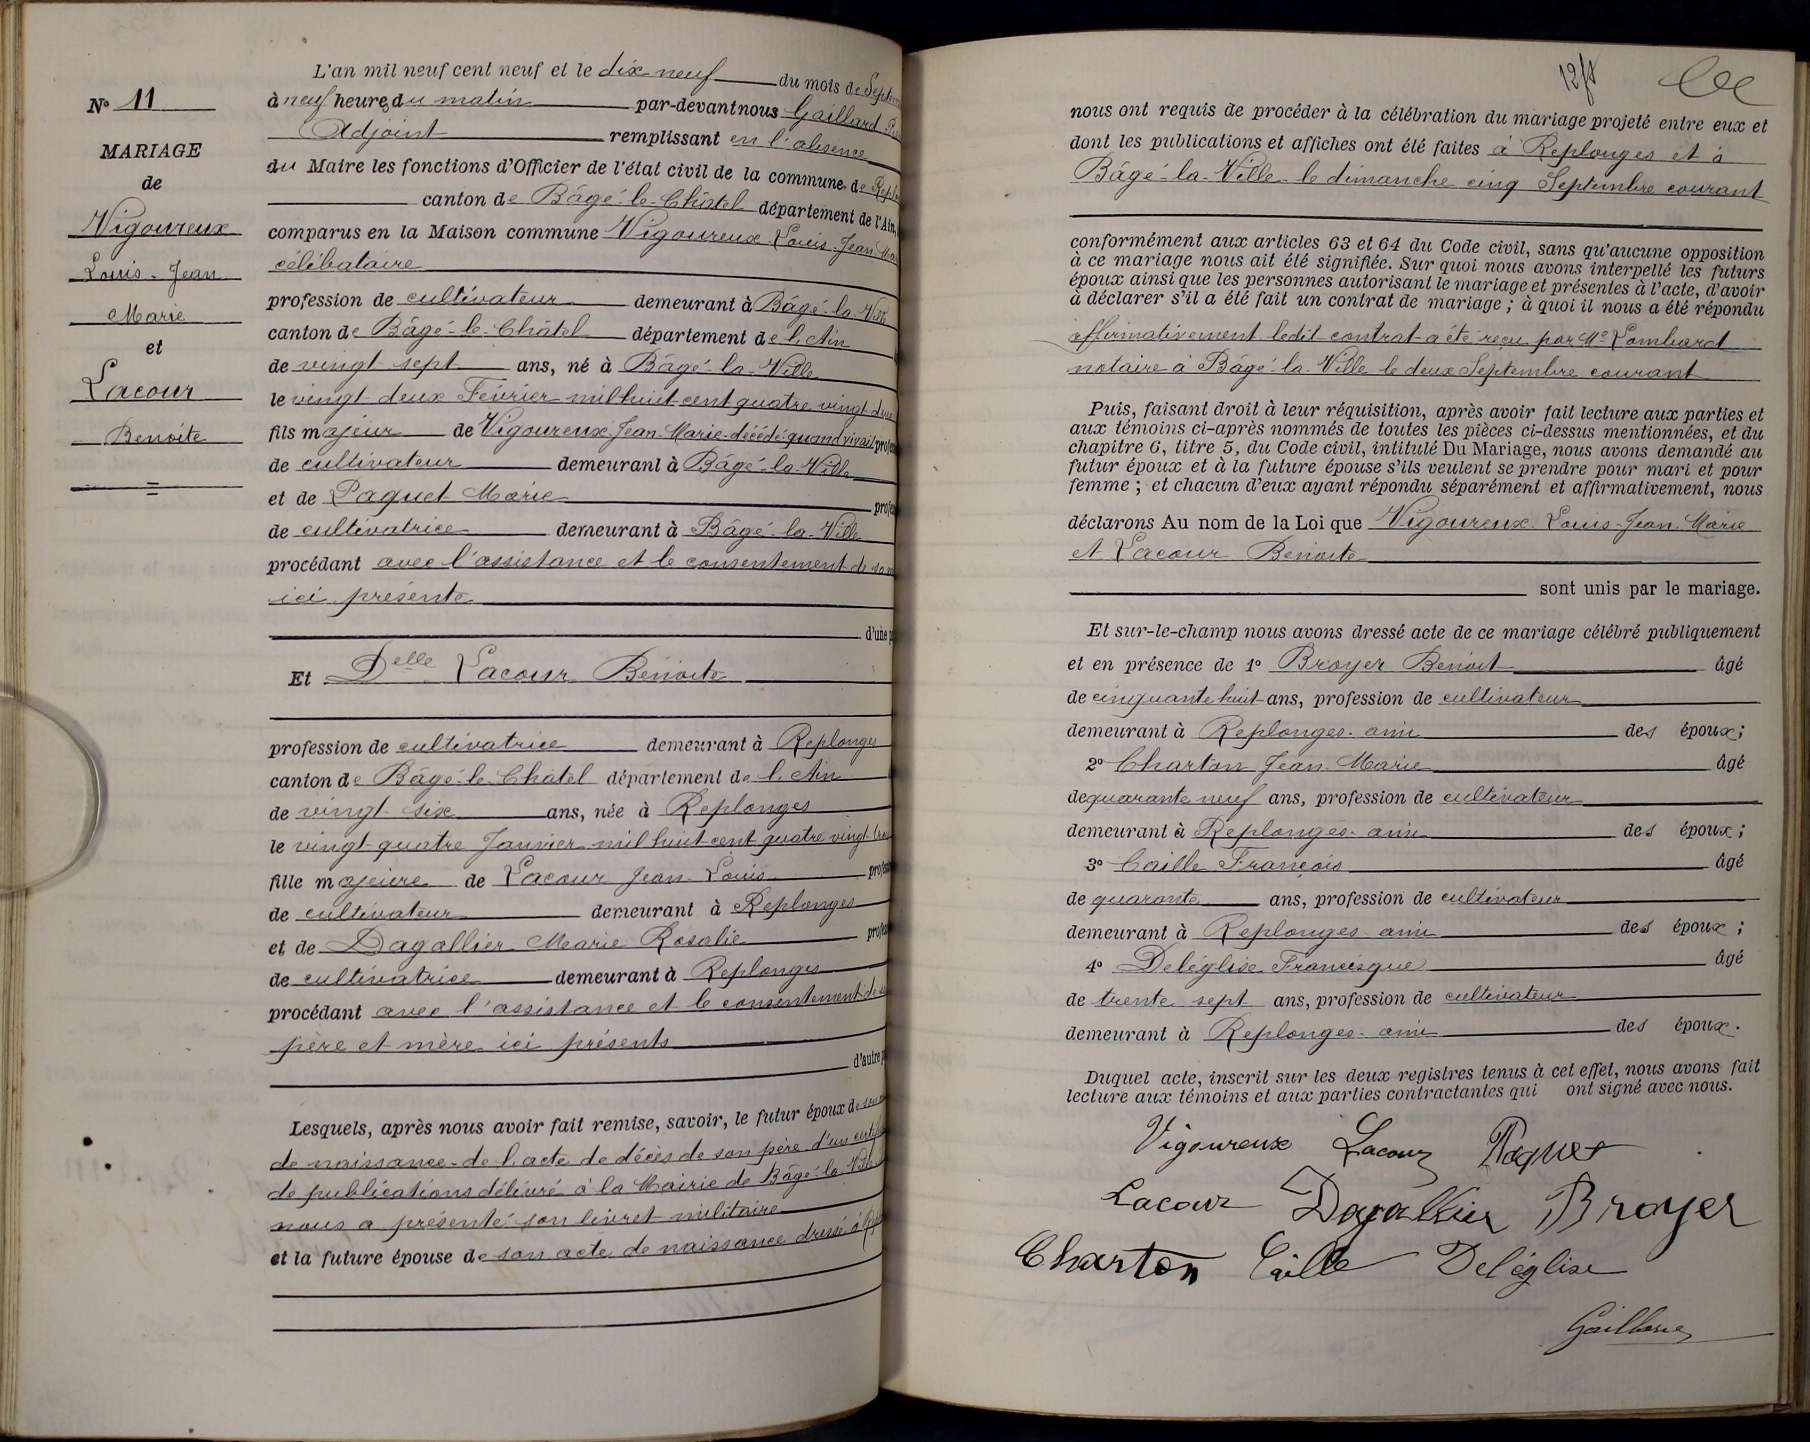 N° 11
MARIAGE
de
Vigoureux
Louis-Jean
Marie
et
Lacour
Benoite
L'an mil neuf cent neuf et le dix neuf du mois de Septem
à neuf heures du matin par-devant nous Gaillard
Adjoint remplissant en l'absence
du Maire les fonctions d'Officier de l'état civil de la commune de Replo
canton de Bâgé-le-Châtel département de l'Ain,
comparus en la Maison commune Vigoureux Louis-Jean Mar
célibataire
profession de cultivateur demeurant à Bâgé-la-Ville
canton de Bâgé-le-Châtel département de l'Ain
de vingt sept ans, né à Bâgé-la-Ville
le vingt deux Février mil huit cent quatre vingt deux
fils majeur de Vigoureux Jean-Marie décédé quand vivait profes
de cultivateur demeurant à Bâgé-la-Ville
et de Paquet Marie profes
de cultivatrice demeurant à Bâgé-la-Ville
procédant avec l'assistance et le consentement de sa m
ici présente
d'une p
Et Delle Lacour Benoite
profession de cultivatrice demeurant à Replonges
canton de Bâgé-le-Châtel département de l'Ain
de vingt six ans, née à Replonges
le vingt quatre Janvier mil huit cent quatre vingt tro
fille majeure de Lacour Jean-Louis profes
de cultivateur demeurant à Replonges
et de Dagallier Marie Rosalie profes
de cultivatrice demeurant à Replonges
procédant avec l'assistance et le consentement de s
père et mère ici présents
d'autre p
Lesquels, après nous avoir fait remise, savoir, le futur époux de son a
de naissance - de l'acte de décès de son père - d'un certif
de publications délivré à la Mairie de Bâgé-la-Ville
nous a présenté son livret militaire
et la future épouse de son acte de naissance dressé à
nous ont requis de procéder à la célébration du mariage projeté entre eux et
dont les publications et affiches ont été faites à Replonges et à
Bâgé-la-Ville le dimanche cinq Septembre courant
conformément aux articles 63 et 64 du Code civil, sans qu'aucune opposition
à ce mariage nous ait été signifiée. Sur quoi nous avons interpellé les futurs
époux ainsi que les personnes autorisant le mariage et présentes à l'acte, d'avoir
à déclarer s'il a été fait un contrat de mariage ; à quoi il nous a été répondu
affirmativement ledit contrat a été reçu par Me Lombard
notaire à Bâgé-la-Ville le deux Septembre courant
Puis, faisant droit à leur réquisition, après avoir fait lecture aux parties et
aux témoins ci-après nommés de toutes les pièces ci-dessus mentionnées, et du
chapitre 6, titre 5, du Code civil, intitulé Du Mariage, nous avons demandé au
futur époux et à la future épouse s'ils veulent se prendre pour mari et pour
femme ; et chacun d'eux ayant répondu séparément et affirmativement, nous
déclarons Au nom de la Loi que Vigoureux Louis-Jean-Marie
et Lacour Benoite
sont unis par le mariage.
Et sur-le-champ nous avons dressé acte de ce mariage célébré publiquement
et en présence de 1° Broyer Benoit âgé
de cinquante huit ans, profession de cultivateur
demeurant à Replonges - ami des époux ;
2° Charton Jean-Marie âgé
de quarante neuf ans, profession de cultivateur
demeurant à Replonges - ami des époux ;
3° Caille François âgé
de quarante ans, profession de cultivateur
demeurant à Replonges - ami des époux ;
4° Deléglise Francisque âgé
de trente sept ans, profession de cultivateur
demeurant à Replonges - ami des époux.
Duquel acte, inscrit sur les deux registres tenus à cet effet, nous avons fait
lecture aux témoins et aux parties contractantes qui ont signé avec nous.
Vigoureux Lacour Paquet
Lacour Dagallier Broyer
Charton Caille Deléglise
Gaillard